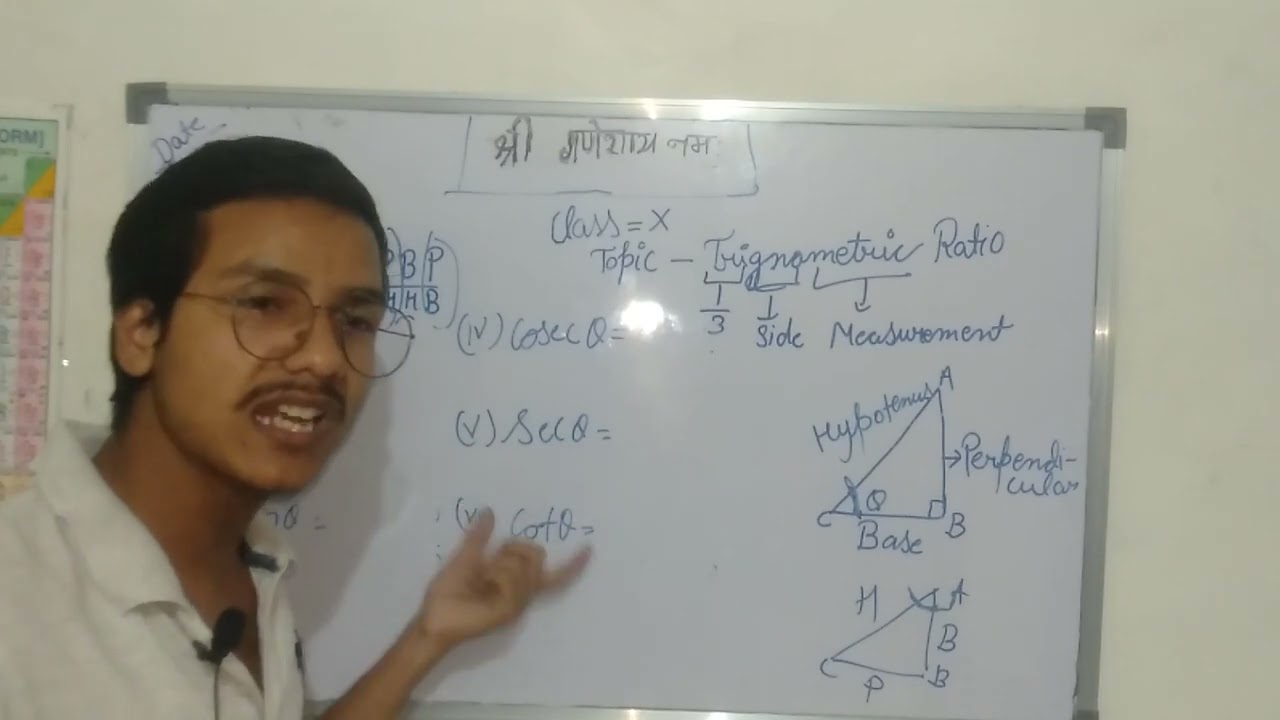 ORM]
Date
श्री गणेशाय नम
Class = X
Topic - Trignometric Ratio
3 Side Measurement
P B P
H H B
(iv) Cosec θ =
(v) Sec θ =
θ =
Cot θ =
A
Hypotenus
Perpendi-
cular
θ
C B
Base
H A
B
C B
P